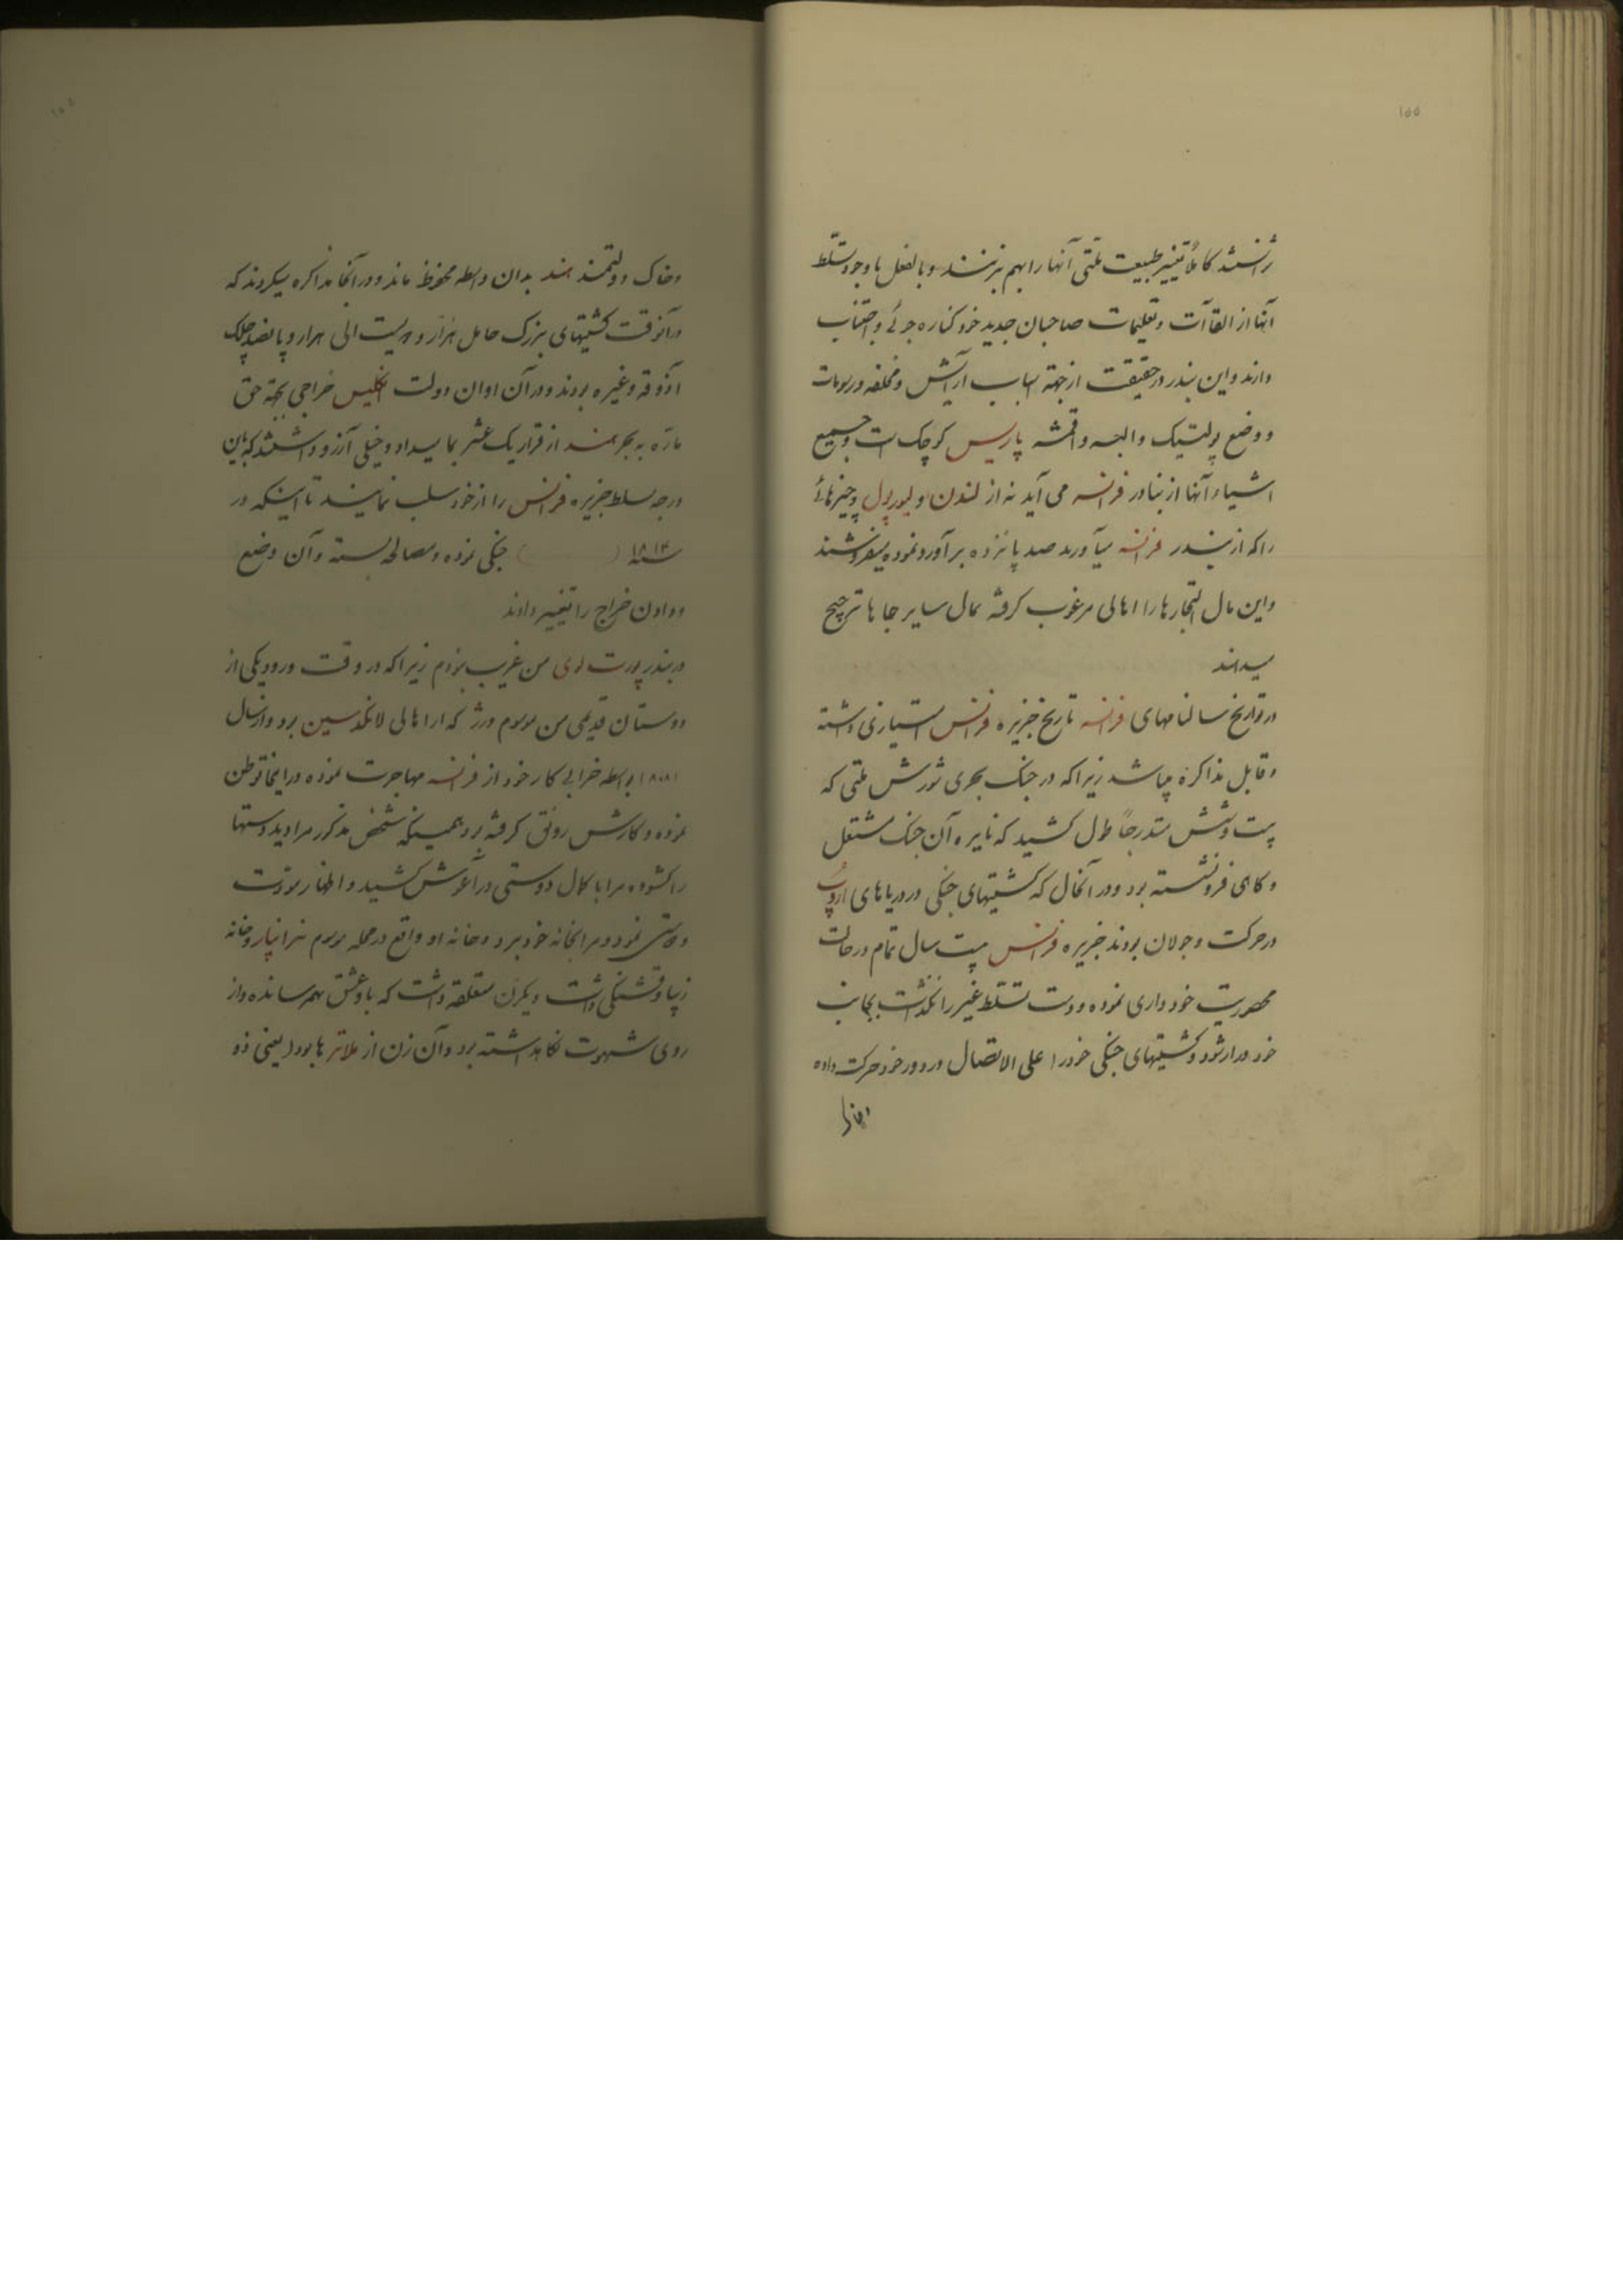 ۱۵۵
نشد کاملاً تغییر طبیعت ملتی آنها را بهم بزنند و بالفعل با وجود تسلط
آنها از القاآت و تعلیمات صاحبان جدید خود کناره جوئی و اجتناب
دارند و این بندر در حقیقت از جهته اسباب آرایش و مخلفه و رسومات
و وضع پولتیک و البسه و اقمشه پاریس کوچک است و جمیع
اشیاء آنها از بنادر فرانسه می آید نه از لندن و لیورپول و چیزهائی
را که از بندر فرانسه میآورند صد پانزده برآورد نموده میفروشند
و این مال التجارها را اهالی مرغوب گرفته بمال سایر جاها ترجیح
میدانند
در تواریخ سالنامهای فرانسه تاریخ جزیره فرانس امتیازی داشته
و قابل مذاکره میباشد زیرا که در جنک بحری شورش ملتی که
بیست و شش متدرجاً طول کشید که نایره آن جنک مشتعل
و گاهی فرو نشسته بود و در آنحال که کشتیهای جنگی در دریاهای اروپ
در حرکت و جولان بودند جزیره فرانس بیست سال تمام در حالت
محصوریت خودداری نموده و دست تسلط غیر را نگذاشت بجانب
خود دراز شود و کشتیهای جنگی خود را علی الاتصال در دور خود حرکت داده
و خاک دولتمند هند بدان واسطه محفوظ ماند و در آنجا مذاکره میکردند که
در آنوقت کشتیهای بزرک حامل هزار و دویست الی هزار و پانصد چلیک
آذوقه و غیره بودند و در آن اوان دولت انگلیس خراجی بجهة حق
به بحر هند از قرار یک عشر بما میداد و خیلی آرزو داشتند که این
درجه تسلط جزیره فرانس را از خود سلب نمایند تا اینکه در
سنه ۱۸۱۴ ( ) جنگی نموده و مصالحه بسته و آن وضع
و دادن خراج را تغییر دادند
در بندر پورت لوی من غریب بودم زیرا که در وقت ورود یکی از
دوستان قدیمی من موسوم ورژ که از اهالی لانکدسین بود و از سال
۱۸۰۸ بواسطه خرابی کار خود از فرانسه مهاجرت نموده در اینجا توطن
نموده و کارش رونق گرفته بود همینکه شخص مذکور مرا دید دستها
را گشوده مرا با کمال دوستی در آغوش کشید و اظهار مودت
و دوستی نمود و مرا بخانه خود برد و خانه او واقع در محله موسوم و خانه
زیبا و قشنگی داشت و یکزن متعلقه داشت که باو عشق بهم رسانده و از
روی شهوت نگاهداشته بود و آن زن از ملاترها بود (یعنی ذو